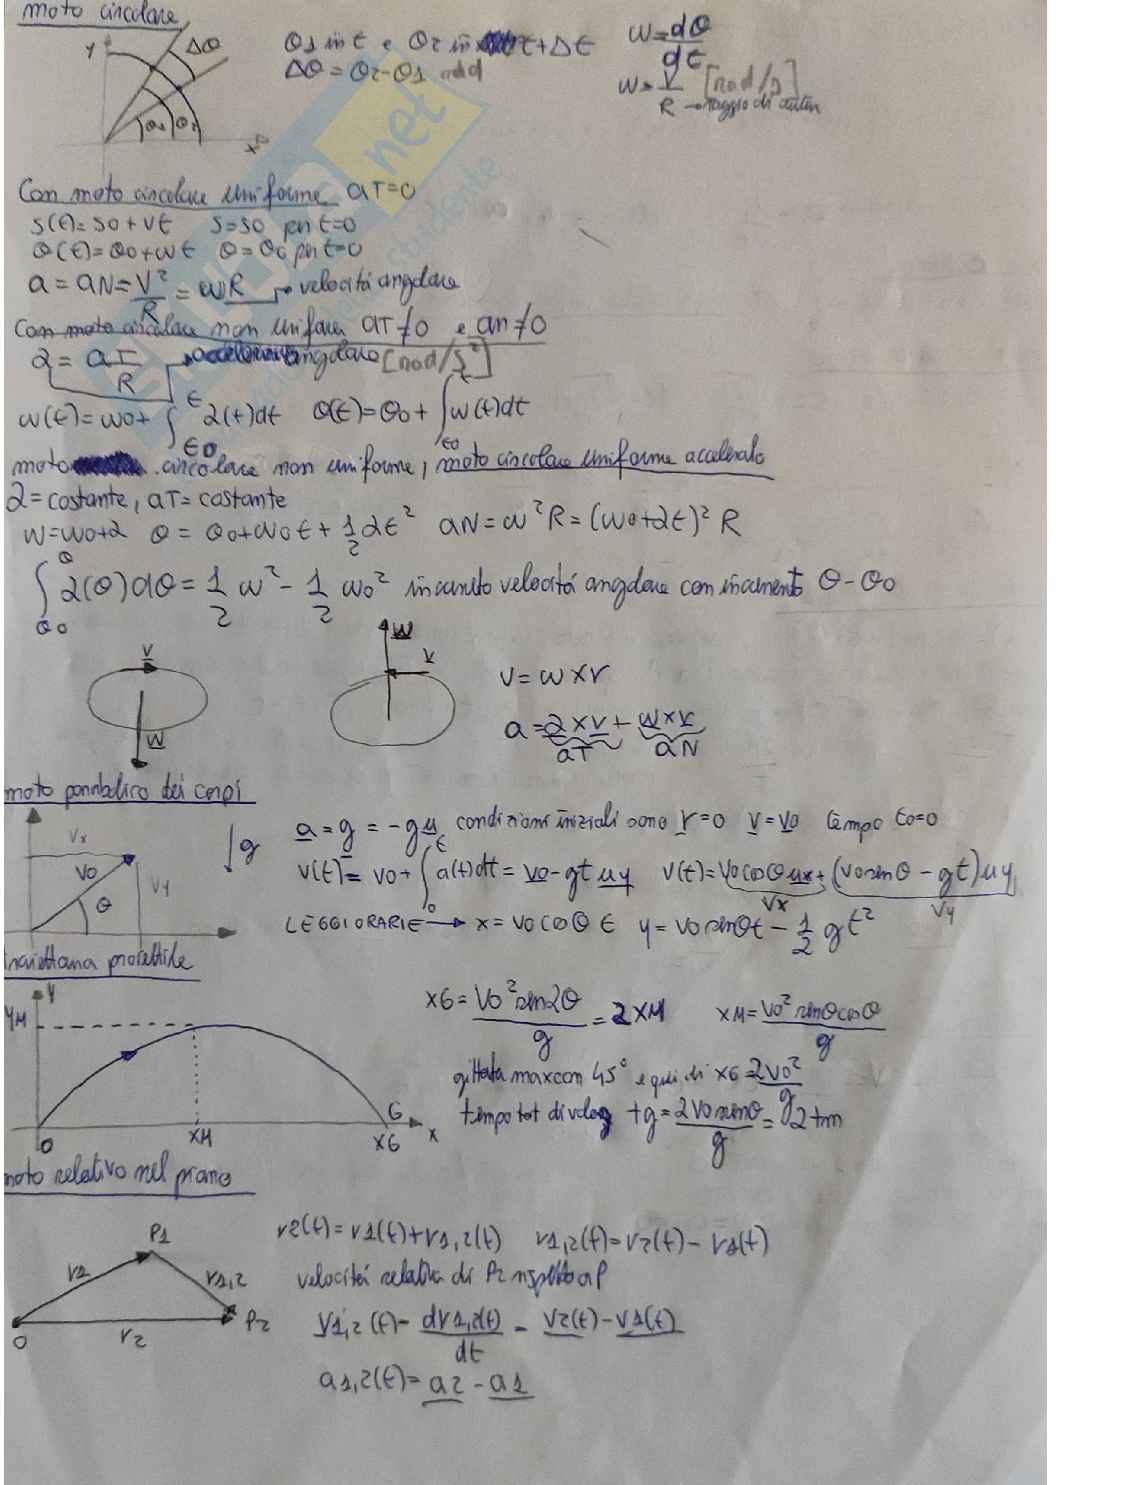 moto circolare
y Δθ θ1 θ2 x
θ1 in t e θ2 in t+Δt
Δθ = θ2-θ1 rad
w = dθ/dt
w = v/R [rad/s]
R → raggio di
Con moto circolare uniforme aT=0
s(t)= s0 + vt s=s0 per t=0
θ(t)=θ0+wt θ=θ0 per t=0
a = aN = v²/R = wR → velocitá angolare
Con moto circolare non uniforme aT≠0 e an≠0
α = aT/R → accelerazione angolare [rad/s²]
w(t)=w0+∫t0^t α(t)dt θ(t)=θ0+∫t0^t w(t)dt
moto circolare non uniforme, moto circolare uniforme accelerato
α=costante, aT=costante
w=w0+α θ = θ0+w0t+1/2 αt² aN = w²R = (w0+αt)² R
∫θ0^θ α(θ)dθ = 1/2 w² - 1/2 w0² velocitá angolare con incremento θ-θ0
v w
w v
v = w x r
a = α x v + w x v
aT aN
moto parabolico dei corpi
vx v0 vy θ
↓g
a = g = -gu condizioni iniziali sono r=0 v=v0 tempo t0=0
v(t)= v0+∫0^t a(t)dt = v0-gt uy v(t)= v0cosθux+(v0sinθ-gt)uy
vx vy
LEGGI ORARIE → x = v0 cosθ t y = v0 sinθt - 1/2 gt²
traiettoria proiettile
y yM O xM G xG x
xG = v0² sen2θ/g = 2xM xM = v0² senθcosθ/g
gittata max con 45° e quindi xG = 2v0²/g
tempo tot di volo tg = 2v0senθ/g = 2tm
moto relativo nel piano
O r1 P1 r1,2 P2 r2
r2(t)=r1(t)+r1,2(t) r1,2(t)=r2(t)-r1(t)
velocitá relativa di P2 rispetto a P
v1,2(t)= dr1,2(t)/dt = v2(t)-v1(t)
a1,2(t)= a2 - a1